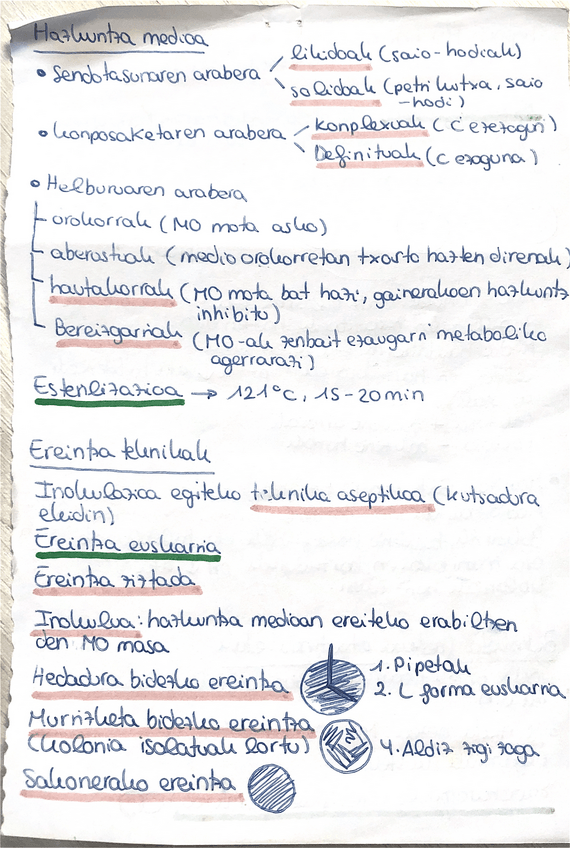 Hazkuntza medioa
• Sendotasunaren arabera
likidoak (saio-hodiak)
solidoak (petri kutxa, saio
-hodi)
• Konposaketaren arabera
Konplexuak (C ezezagun)
Definituak (C ezaguna)
• Helburuaren arabera
orokorrak (MO mota asko)
aberastuak (medio orokorretan txarto hazten direnak)
hautakorrak (MO mota bat hazi, gainerakoen hazkuntz
inhibitu)
Bereizgarriak (MO-ak zenbait ezaugarri metaboliko
agerrarazi)
Esterilizazioa → 121°C, 15-20min
Ereintza teknikak
Inokulazioa egiteko teknika aseptikoa (kutsadura
ekidin)
Ereintza euskarria
Ereintza ziztada
Inokulua: hazkuntza medioan ereiteko erabiltzen
den MO masa
Hedadura bidezko ereintza
1. Pipetak
2. L forma euskarria
Murrizketa bidezko ereintza
(kolonia isolatuak lortu)
4. Aldiz zigi zaga
Sakonerako ereintza